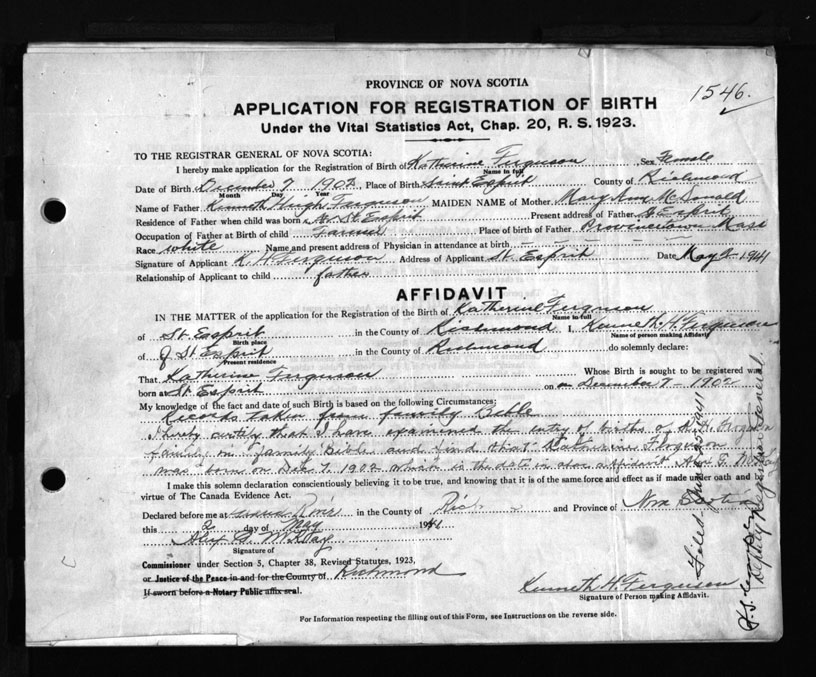 PROVINCE OF NOVA SCOTIA
1546.
APPLICATION FOR REGISTRATION OF BIRTH
Under the Vital Statistics Act, Chap. 20, R. S. 1923.
TO THE REGISTRAR GENERAL OF NOVA SCOTIA:
I hereby make application for the Registration of Birth of Katherine Ferguson Sex Female
Name in full
Date of Birth December 7 1902, Place of Birth Saint Esprit County of Richmond
Month Day Year
Name of Father Kenneth Hugh Ferguson MAIDEN NAME of Mother Mary Ann McDonald
Residence of Father when child was born St Esprit Present address of Father St Esprit
Occupation of Father at Birth of child Farmer Place of birth of Father Provincetown Mass
Race white Name and present address of Physician in attendance at birth
Signature of Applicant K H Ferguson Address of Applicant St. Esprit Date May 2 1941
Relationship of Applicant to child father
AFFIDAVIT
IN THE MATTER of the application for the Registration of the Birth of Katherine Ferguson
Name in full
of St Esprit in the County of Richmond I, Kenneth H Ferguson
Birth place Name of person making Affidavit
of St Esprit in the County of Richmond do solemnly declare:
Present residence
That Katherine Ferguson Whose Birth is sought to be registered was
born at St. Esprit on December 7 - 1902
My knowledge of the fact and date of such Birth is based on the following Circumstances:
Records taken from family Bible
I hereby certify that I have examined the entry of births of K. H. Ferguson
family in family Bible and find that Katherine Ferguson
was born on Dec 7. 1902 which is the date in above affidavit
I make this solemn declaration conscientiously believing it to be true, and knowing that it is of the same force and effect as if made under oath and by
virtue of The Canada Evidence Act.
Declared before me at Grand River in the County of Rich and Province of Nova Scotia
this 2 day of May 1941
Signature of
Commissioner under Section 5, Chapter 38, Revised Statutes, 1923,
or Justice of the Peace in and for the County of Richmond
If sworn before a Notary Public affix seal.
Kenneth H. Ferguson
Signature of Person making Affidavit.
For Information respecting the filling out of this Form, see Instructions on the reverse side.
Filed 1941
Deputy Registrar General.